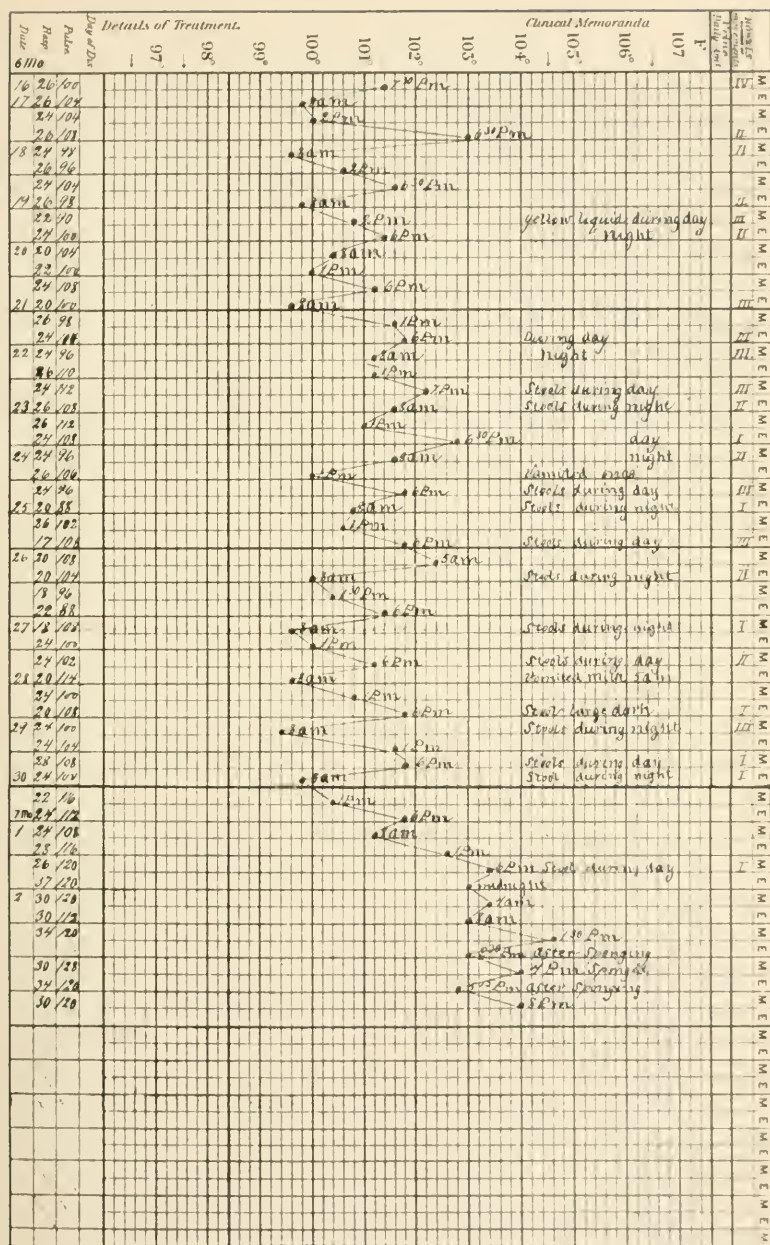 Date Resp Pulse Day of Dis Details of Treatment. Clinical Memoranda Urine Daily Amt Bowels movements
6 Mo 97° 98° 99° 100° 101° 102° 103° 104° 105° 106° 107 F
16 26 100 7 30 Pm IV
17 26 104 8am
24 104 2Pm
26 108 6 30 Pm II
18 24 98 8am II
26 96 2Pm
24 104 6 30 Pm
19 26 98 8am II
22 90 2Pm Yellow liquid during day III
24 100 6Pm Night II
20 20 104 8am
22 100 1Pm
24 108 6Pm
21 20 100 8am III
26 98 1Pm
24 6Pm During day III
22 24 96 8am Night III
26 110 1Pm
24 112 7Pm Stools during day III
23 26 108 8am Stools during night II
26 112 1Pm
24 108 6 30 Pm day I
24 24 96 8am night II
26 106 1Pm Vomited once
24 96 6Pm Stools during day III
25 20 88 8am Stools during night I
26 102 1Pm
17 108 6Pm Stools during day III
26 20 108 5am
20 104 8am Stools during night II
18 96 1 30 Pm
22 88 6Pm
27 18 108 8am Stools during night I
24 100 1Pm
24 102 6Pm Stools during day II
28 20 114 8am Vomited milk 5am
24 100 1Pm
20 108 6Pm Stool large dark I
29 24 100 8am Stools during night III
24 104 1Pm
28 108 6Pm Stools during day I
30 24 104 8am Stool during night I
22 116 1Pm
7 Mo 24 112 6Pm
1 24 108 8am
28 116 1Pm
26 120 6Pm Stool during day I
37 120 midnight
2 30 120 4am
30 112 8am
34 120 1 30 Pm
2 30 Pm after Sponging
30 128 4 Pm Sponged
34 120 Pm after Sponging
30 120 8Pm
M E M E M E M E M E M E M E M E M E M E M E M E M E M E M E M E M E M E